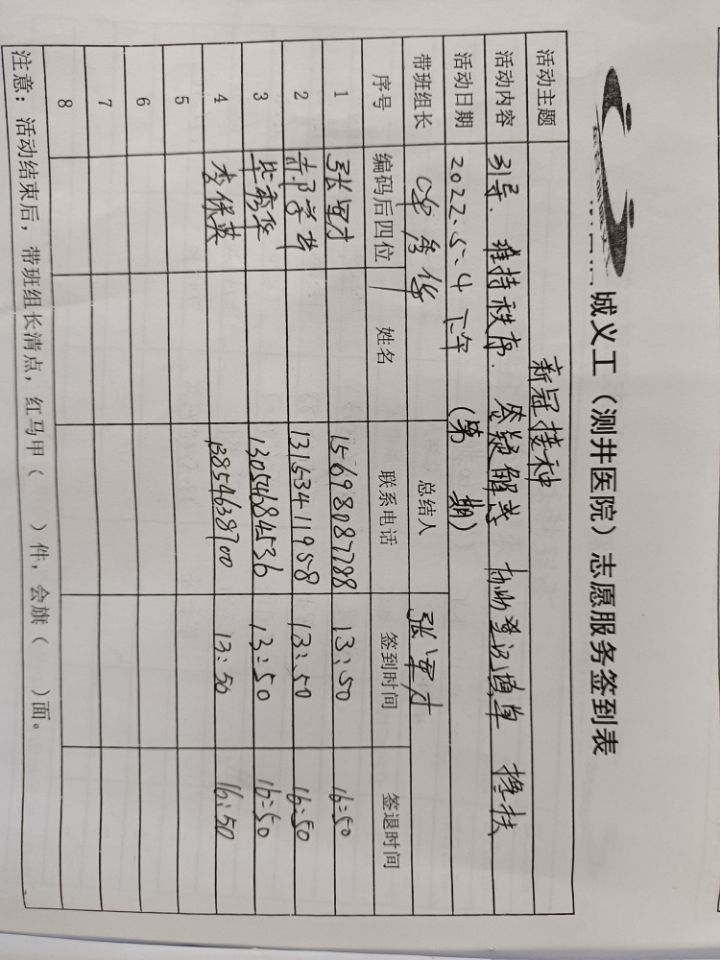 城义工（测井医院）志愿服务签到表
活动主题 新冠接种
活动内容 引导．维持秩序．答疑解惑 协助登记填单 搀扶
活动日期 2022.5.4 下午 （第 期）
带班组长 总结人 张军才
序号 编码后四位 姓名 联系电话 签到时间 签退时间
1 张军才 15698087788 13:50 16:50
2 13153411958 13:50 16:50
3 毕秀华 13054684536 13:50 16:50
4 李保英 13854638700 13:50 16:50
5
6
7
8
注意：活动结束后，带班组长清点，红马甲（ ）件，会旗（ ）面。